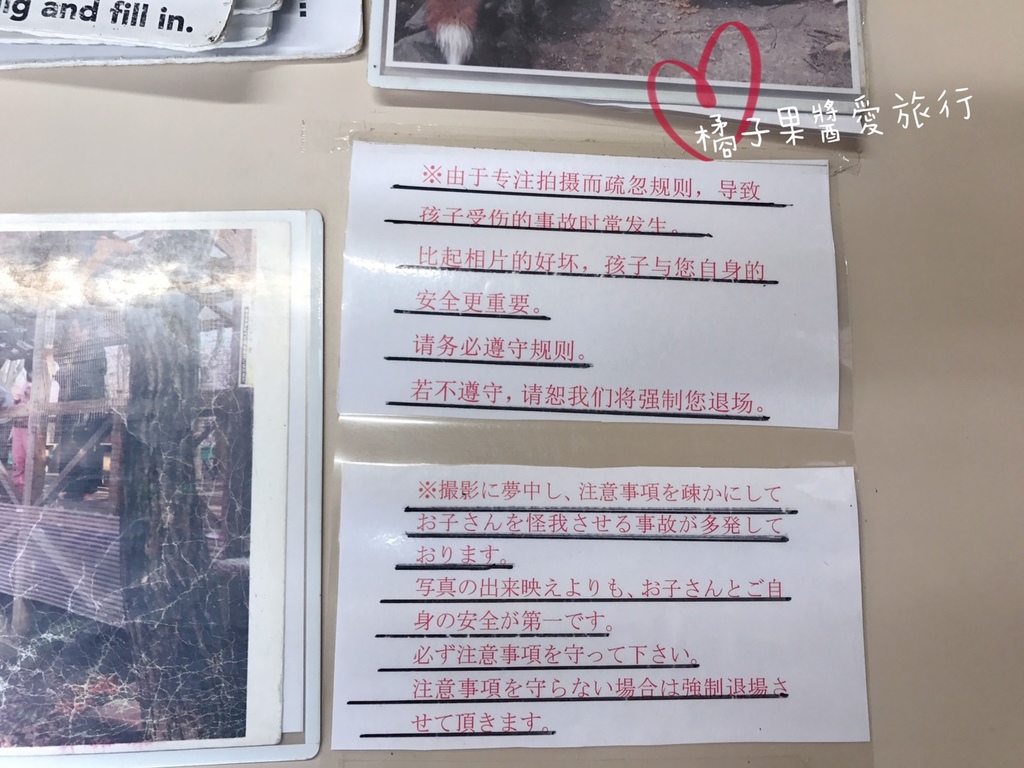 ng and fill in.
橘子果醬愛旅行
※由于专注拍摄而疏忽规则，导致
孩子受伤的事故时常发生。
比起相片的好坏，孩子与您自身的
安全更重要。
请务必遵守规则。
若不遵守，请恕我们将强制您退场。
※撮影に夢中し、注意事項を疎かにして
お子さんを怪我させる事故が多発して
おります。
写真の出来映えよりも、お子さんとご自
身の安全が第一です。
必ず注意事項を守って下さい。
注意事項を守らない場合は強制退場さ
せて頂きます。